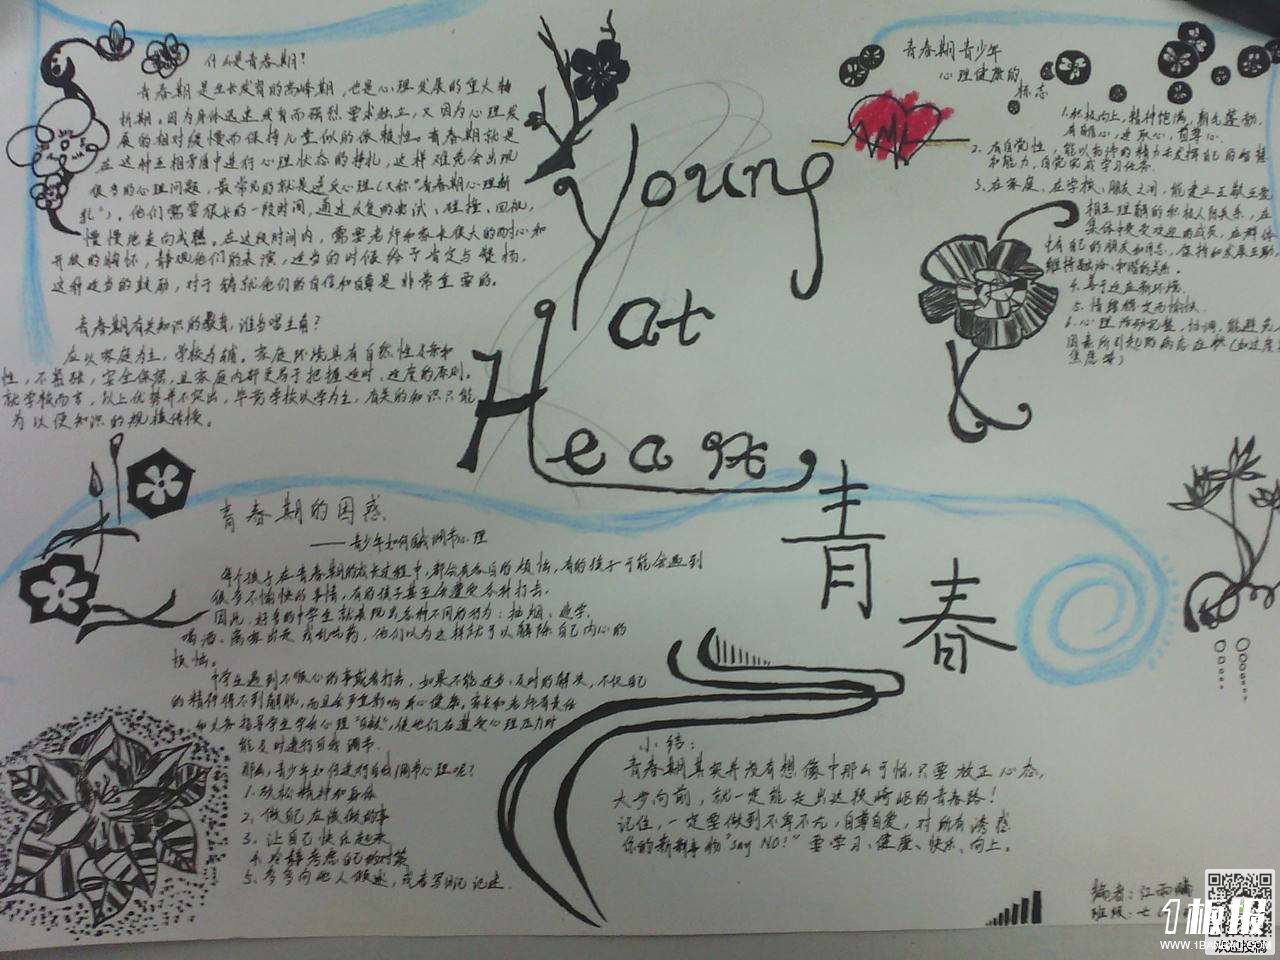 什么是青春期？
青春期是生长发育的高峰期，也是心理发展的重大转
折期。因为身体迅速发育而强烈要求独立，又因为心理发
展的相对缓慢而保持儿童似的依赖性。青春期就是
在这种互相矛盾中进行心理状态的挣扎，这样难免会出现
很多的心理问题，最常见的就是逆反心理（又称"青春期心理新
乱"），他们需要很长的一段时间，通过反复的尝试、碰撞、回视，
慢慢地走向成熟。在这段时间内，需要老师和家长很大的耐心和
开放的胸怀，静观他们的表演，适当的时候给予肯定与赞扬，
这种适当的鼓励，对于铸就他们的自信和自尊是非常重要的。
青春期有关知识的教育，谁当唱主角？
应以家庭为主，学校为辅。家庭环境具有自然性
性，不勉强，安全保密，且家庭内部更易于把握适时、适度的原则。
就学校而言，以上优势并不突出，毕竟学校以学为主，有关的知识只能
为以便知识的规模传授。
Young
at
Heart
青春
青春期青少年
心理健康的
标志
1.积极向上，精神饱满，朝气蓬勃，
有自信心，进取心，自尊心。
2.有自觉性，能以充沛的精力去发挥自己的智慧
和能力，自觉完成学习任务。
3.在家庭、在学校、朋友之间，能建立互敬互爱
相互理解的积极人际关系，在
集体中是受欢迎的成员，在群体
中有自己的朋友和同志，保持和发展互助，
维持融洽、和谐的关系。
4.善于适应新环境。
5.情绪稳定而愉快。
6.心理活动完整，协调，能避免
因素所引起的病态症状（如过度
焦虑等）
青春期的困惑
——青少年如何自我调节心理
每个孩子在青春期的成长过程中，都会有各自的烦恼，有的孩子可能会遇到
很多不愉快的事情，有的孩子甚至会遭受各种打击。
因此，好多的中学生就表现出各种不同的行为：抽烟、逃学、
喝酒、离家出走或乱吃药，他们以为这样就可以解除自己内心的
烦恼。
中学生遇到不顺心的事或者打击，如果不能适当、及时的解决，不仅自己
的精神得不到解脱，而且会严重影响身心健康，家长和老师有责任
和义务指导学生学会心理"自救"，使他们在遭受心理压力时
能及时进行自我调节。
那么，青少年如何进行自我调节心理呢？
1.放松精神和身体
2.做自己应该做的事
3.让自己快乐起来
4.冷静考虑自己的对策
5.多多向他人倾述，或者写日记记述。
小结：
青春期其实并没有想像中那么可怕，只要放正心态，
大步向前，就一定能走出这段崎岖的青春路！
记住，一定要做到不卑不亢，自尊自爱，对所有诱惑
你的新鲜事物"Say NO！"要学习、健康、快乐、向上。
编者：江雨
班级：七
1板报
WWW.1BANBAO.COM
欢迎投稿